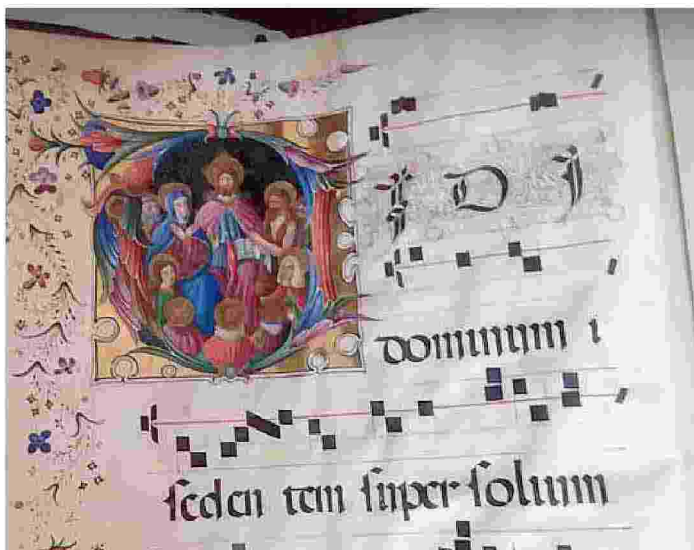 VIDI
dominum i
ſeden tem ſuper ſolium